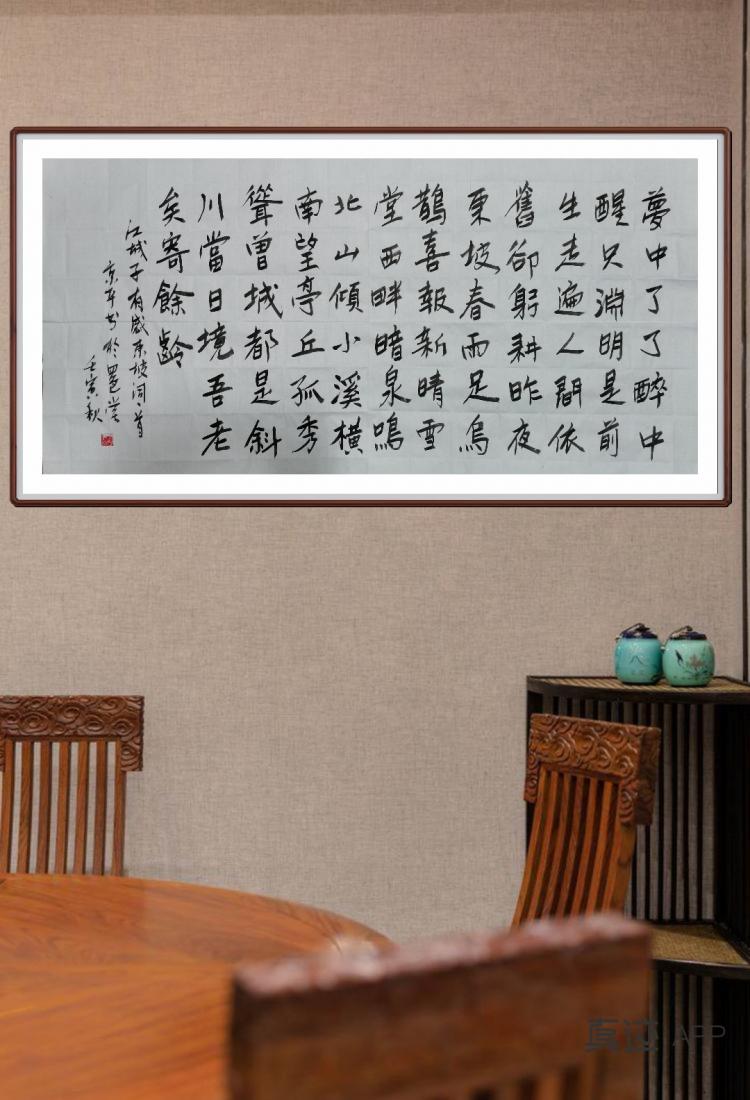 夢中了了醉中
醒只淵明是前
生走遍人間依
舊卻躬耕昨夜
東坡春雨足烏
鵲喜報新晴雪
堂西畔暗泉鳴
北山傾小溪橫
南望亭丘孤秀
聳曾城都是斜
川當日境吾老
矣寄餘齡
江城子有感东坡词一首
京平书於堂
壬寅秋
真迹 APP